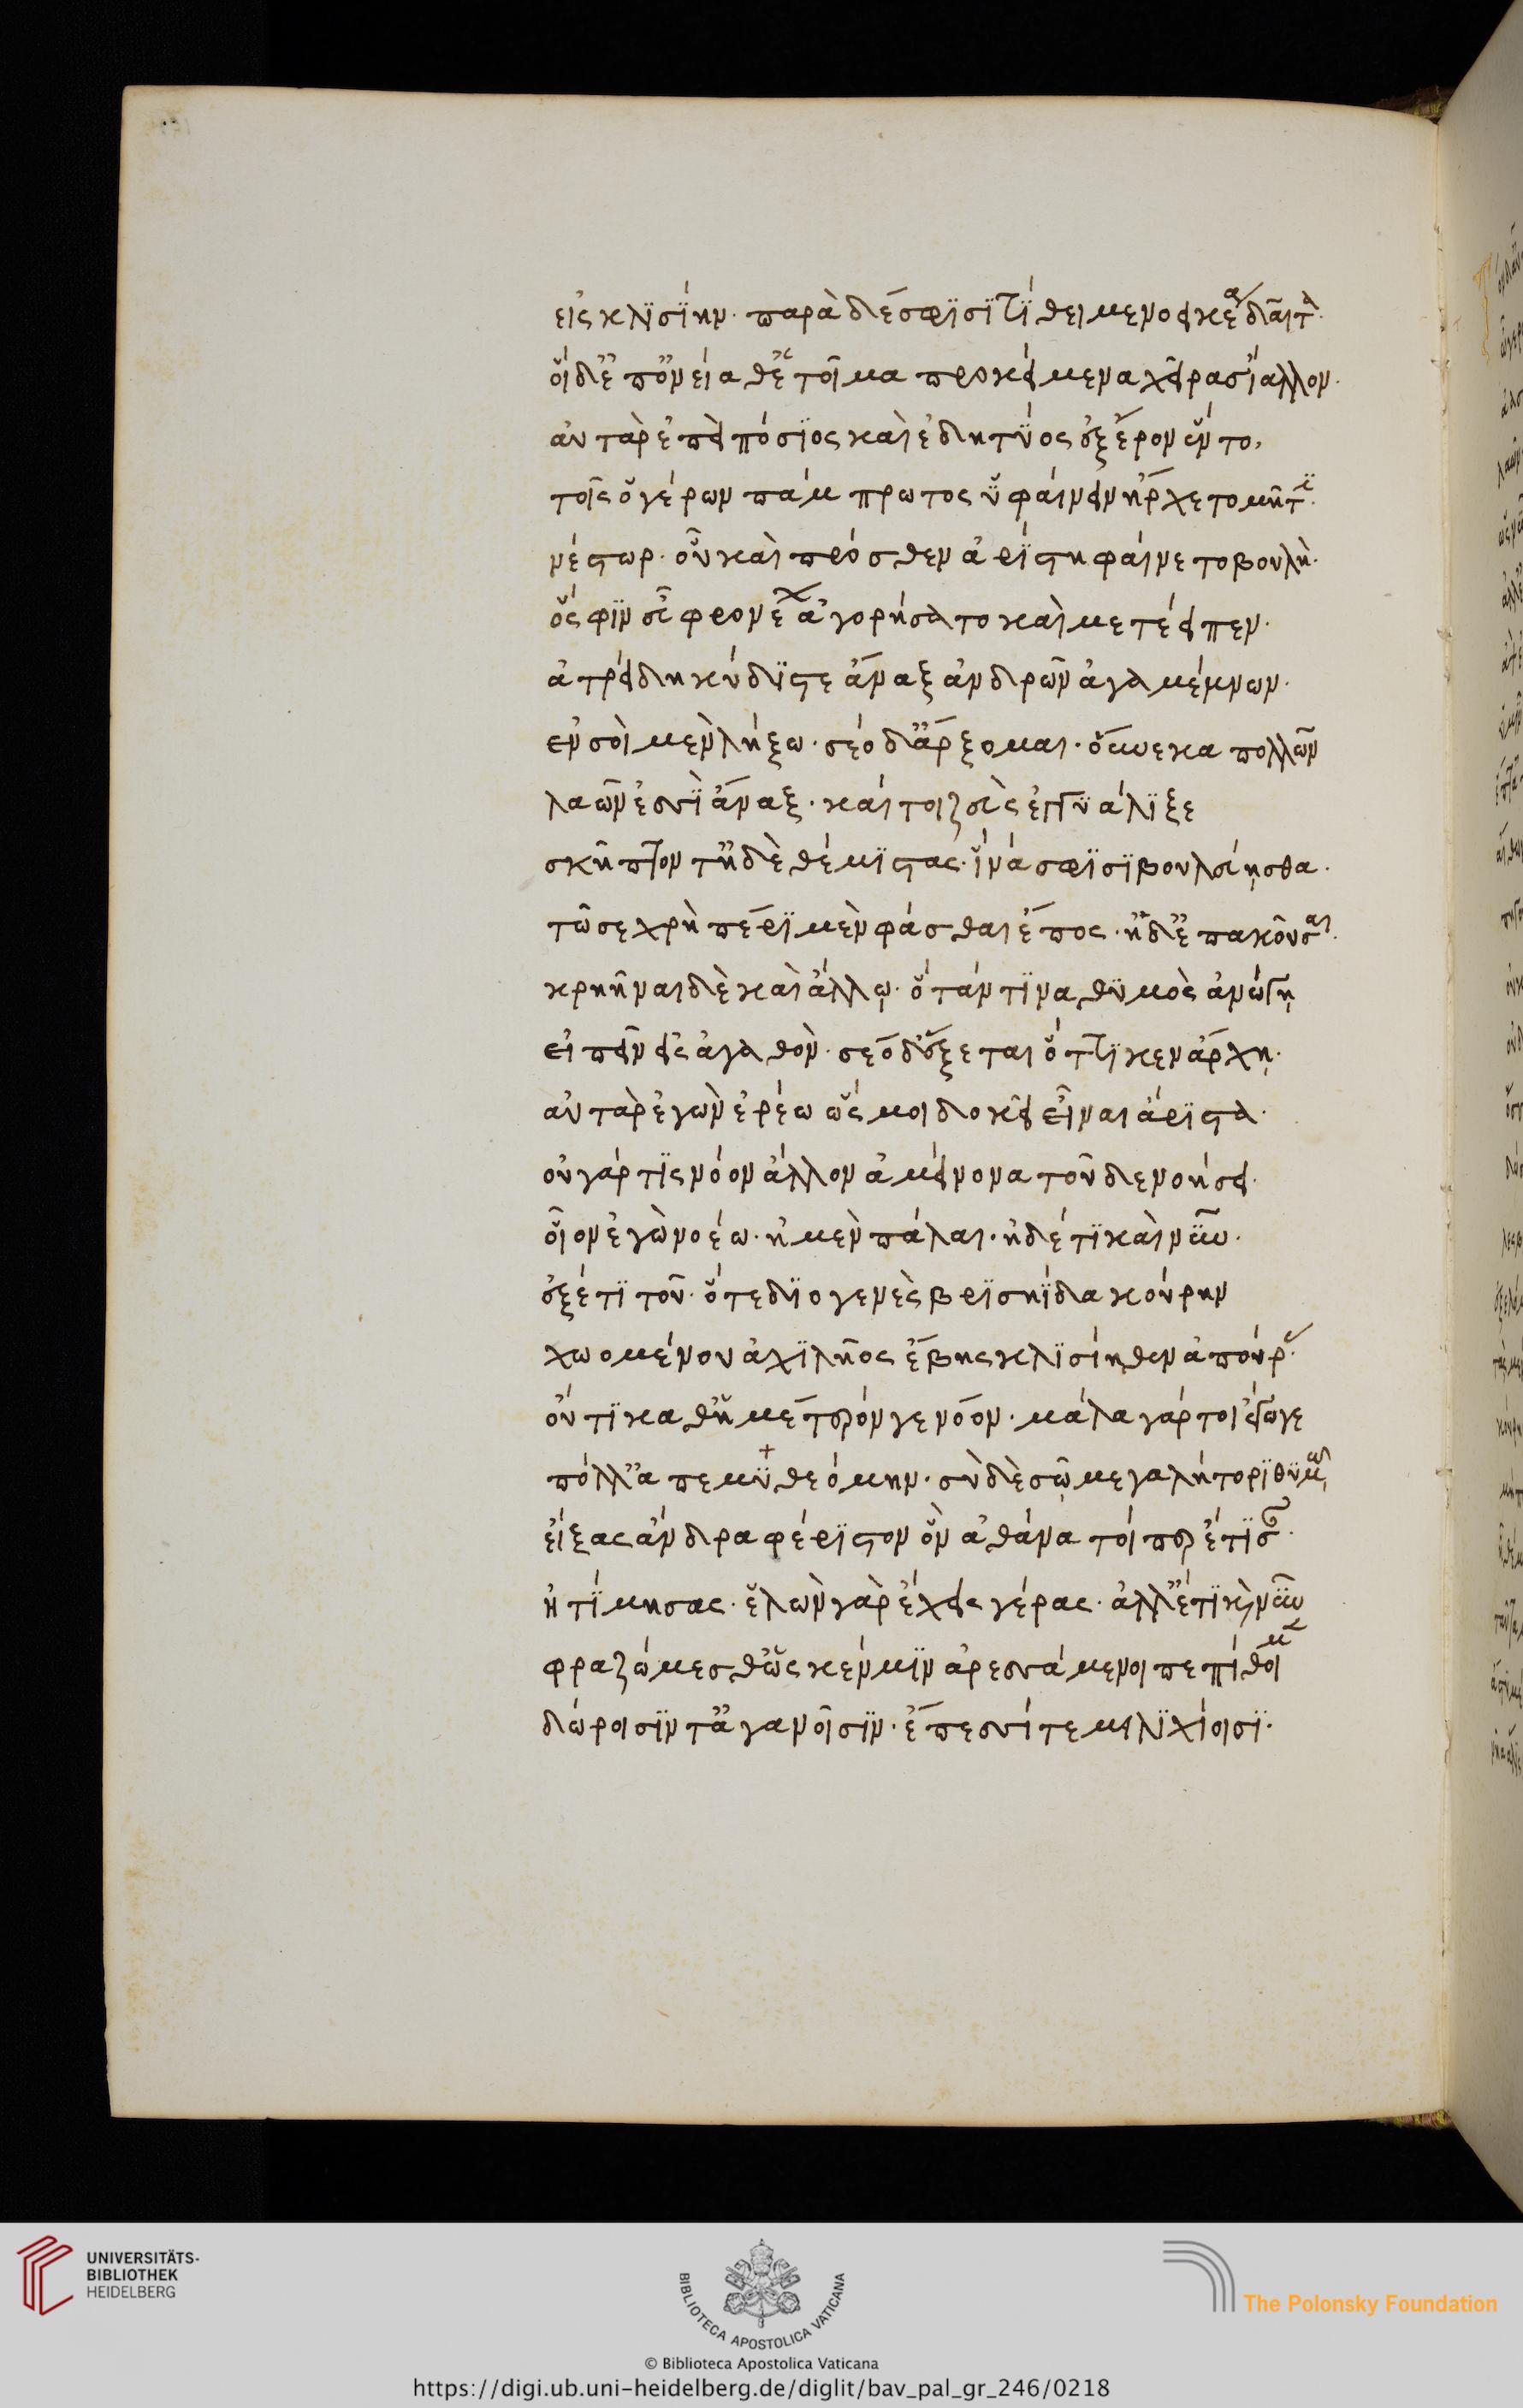 εἰς κλϊσΐην· παρὰ δέ σφϊσϊ τΐθει μενοεικέα δαῖτα·
οἵ δ' ἐπ' ὀνείαθ' ἑτοῖμα προκείμενα χεῖρας ΐαλλον·
αὐτὰρ ἐπεὶ πόσϊος καὶ ἐδητΰος ἐξ ἔρον ἕντο,
τοῖς ὁ γέρων πάμπρωτος ὑφαίνειν ἤρχετο μῆτϊν·
νέστωρ· οὗ καὶ πρόσθεν ἀρΐστη φαίνετο βουλὴ·
ὅς φϊν ἐϋφρονέων ἀγορήσατο καὶ μετέειπεν·
ἀτρείδη κύδϊστε ἄναξ ἀνδρῶν ἀγαμέμνων·
ἐν σοὶ μὲν λήξω· σέο δ' ἄρξομαι· οὕνεκα πολλῶν
λαῶν ἐσσὶ ἄναξ· καί τοι ζεὺς ἐγγϋάλϊξε
σκῆπτρον τ' ἠδὲ θέμϊστας· ἵνά σφϊσϊ βουλεύησθα·
τῶ σε χρὴ πέρϊ μὲν φάσθαι ἔπος· ἠδ' ἐπακοῦσαι·
κρηῆναι δὲ καὶ ἄλλῳ· ὅτ' ἄν τϊνα θϋμὸς ἀνώγῃ
εἰπεῖν εἰς ἀγαθόν· σέο δ' ἕξεται ὅττϊ κεν ἄρχῃ·
αὐτὰρ ἐγὼν ἐρέω ὥς μοι δοκεῖ εἶναι ἄρϊστα·
οὐ γάρ τϊς νόον ἄλλον ἀμείνονα τοῦδε νοήσει·
οἷον ἐγὼ νοέω· ἠμὲν πάλαι· ἠδ' ἔτϊ καὶ νῦν·
ἐξέτϊ τοῦ· ὅτε δϊογενὲς βρϊσηΐδα κούρην
χωομένου ἀχϊλῆος ἔβης κλϊσίηθεν ἀπούρας·
οὔ τϊ καθ' ἡμέτερόν γε νόον· μάλα γάρ τοι ἔγωγε
πόλλ' ἀπεμϋθεόμην· σὺ δὲ σῷ μεγαλήτορϊ θϋμῷ
εἴξας ἄνδρα φέρϊστον ὃν ἀθάνατοί περ ἔτϊσαν·
ἠτίμησας· ἑλὼν γὰρ ἔχεις γέρας· ἀλλ' ἔτϊ καὶ νῦν
φραζώμεσθ' ὥς κέν μϊν ἀρεσσάμενοι πεπίθοιμεν
δώροισϊν τ' ἀγανοῖσϊν· ἔπεσσί τε μειλϊχίοισϊ·
UNIVERSITÄTS-
BIBLIOTHEK
HEIDELBERG
BIBLIOTECA APOSTOLICA VATICANA
The Polonsky Foundation
© Biblioteca Apostolica Vaticana
https://digi.ub.uni-heidelberg.de/diglit/bav_pal_gr_246/0218